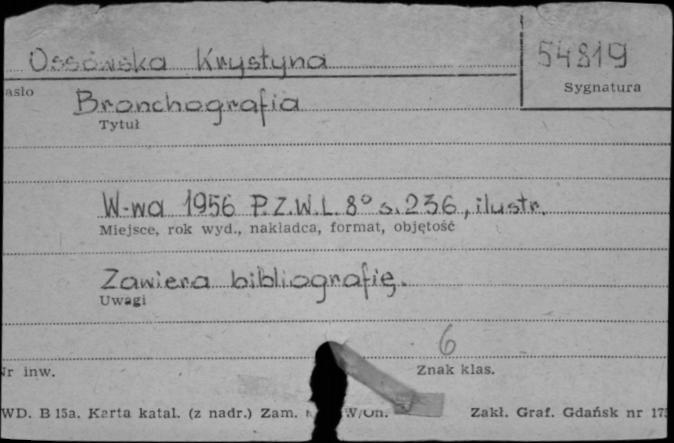 Ossowska Krystyna
54819
Sygnatura
asło
Bronchografia
Tytuł
W-wa 1956 P.Z.W.L. 8° s. 236, ilustr.
Miejsce, rok wyd., nakładca, format, objętość
Zawiera bibliografię.
Uwagi
6
Nr inw.
Znak klas.
WD. B 15a. Karta katal. (z nadr.) Zam. W/On. Zakł. Graf. Gdańsk nr 175